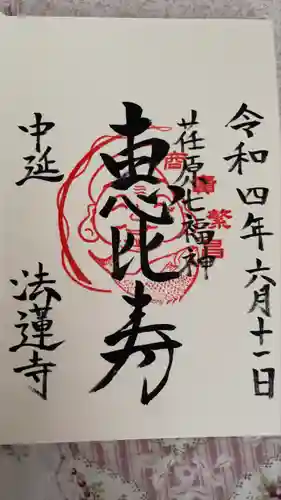 令和四年六月十一日
荏原七福神
商売繁昌
恵比寿
中延
法蓮寺